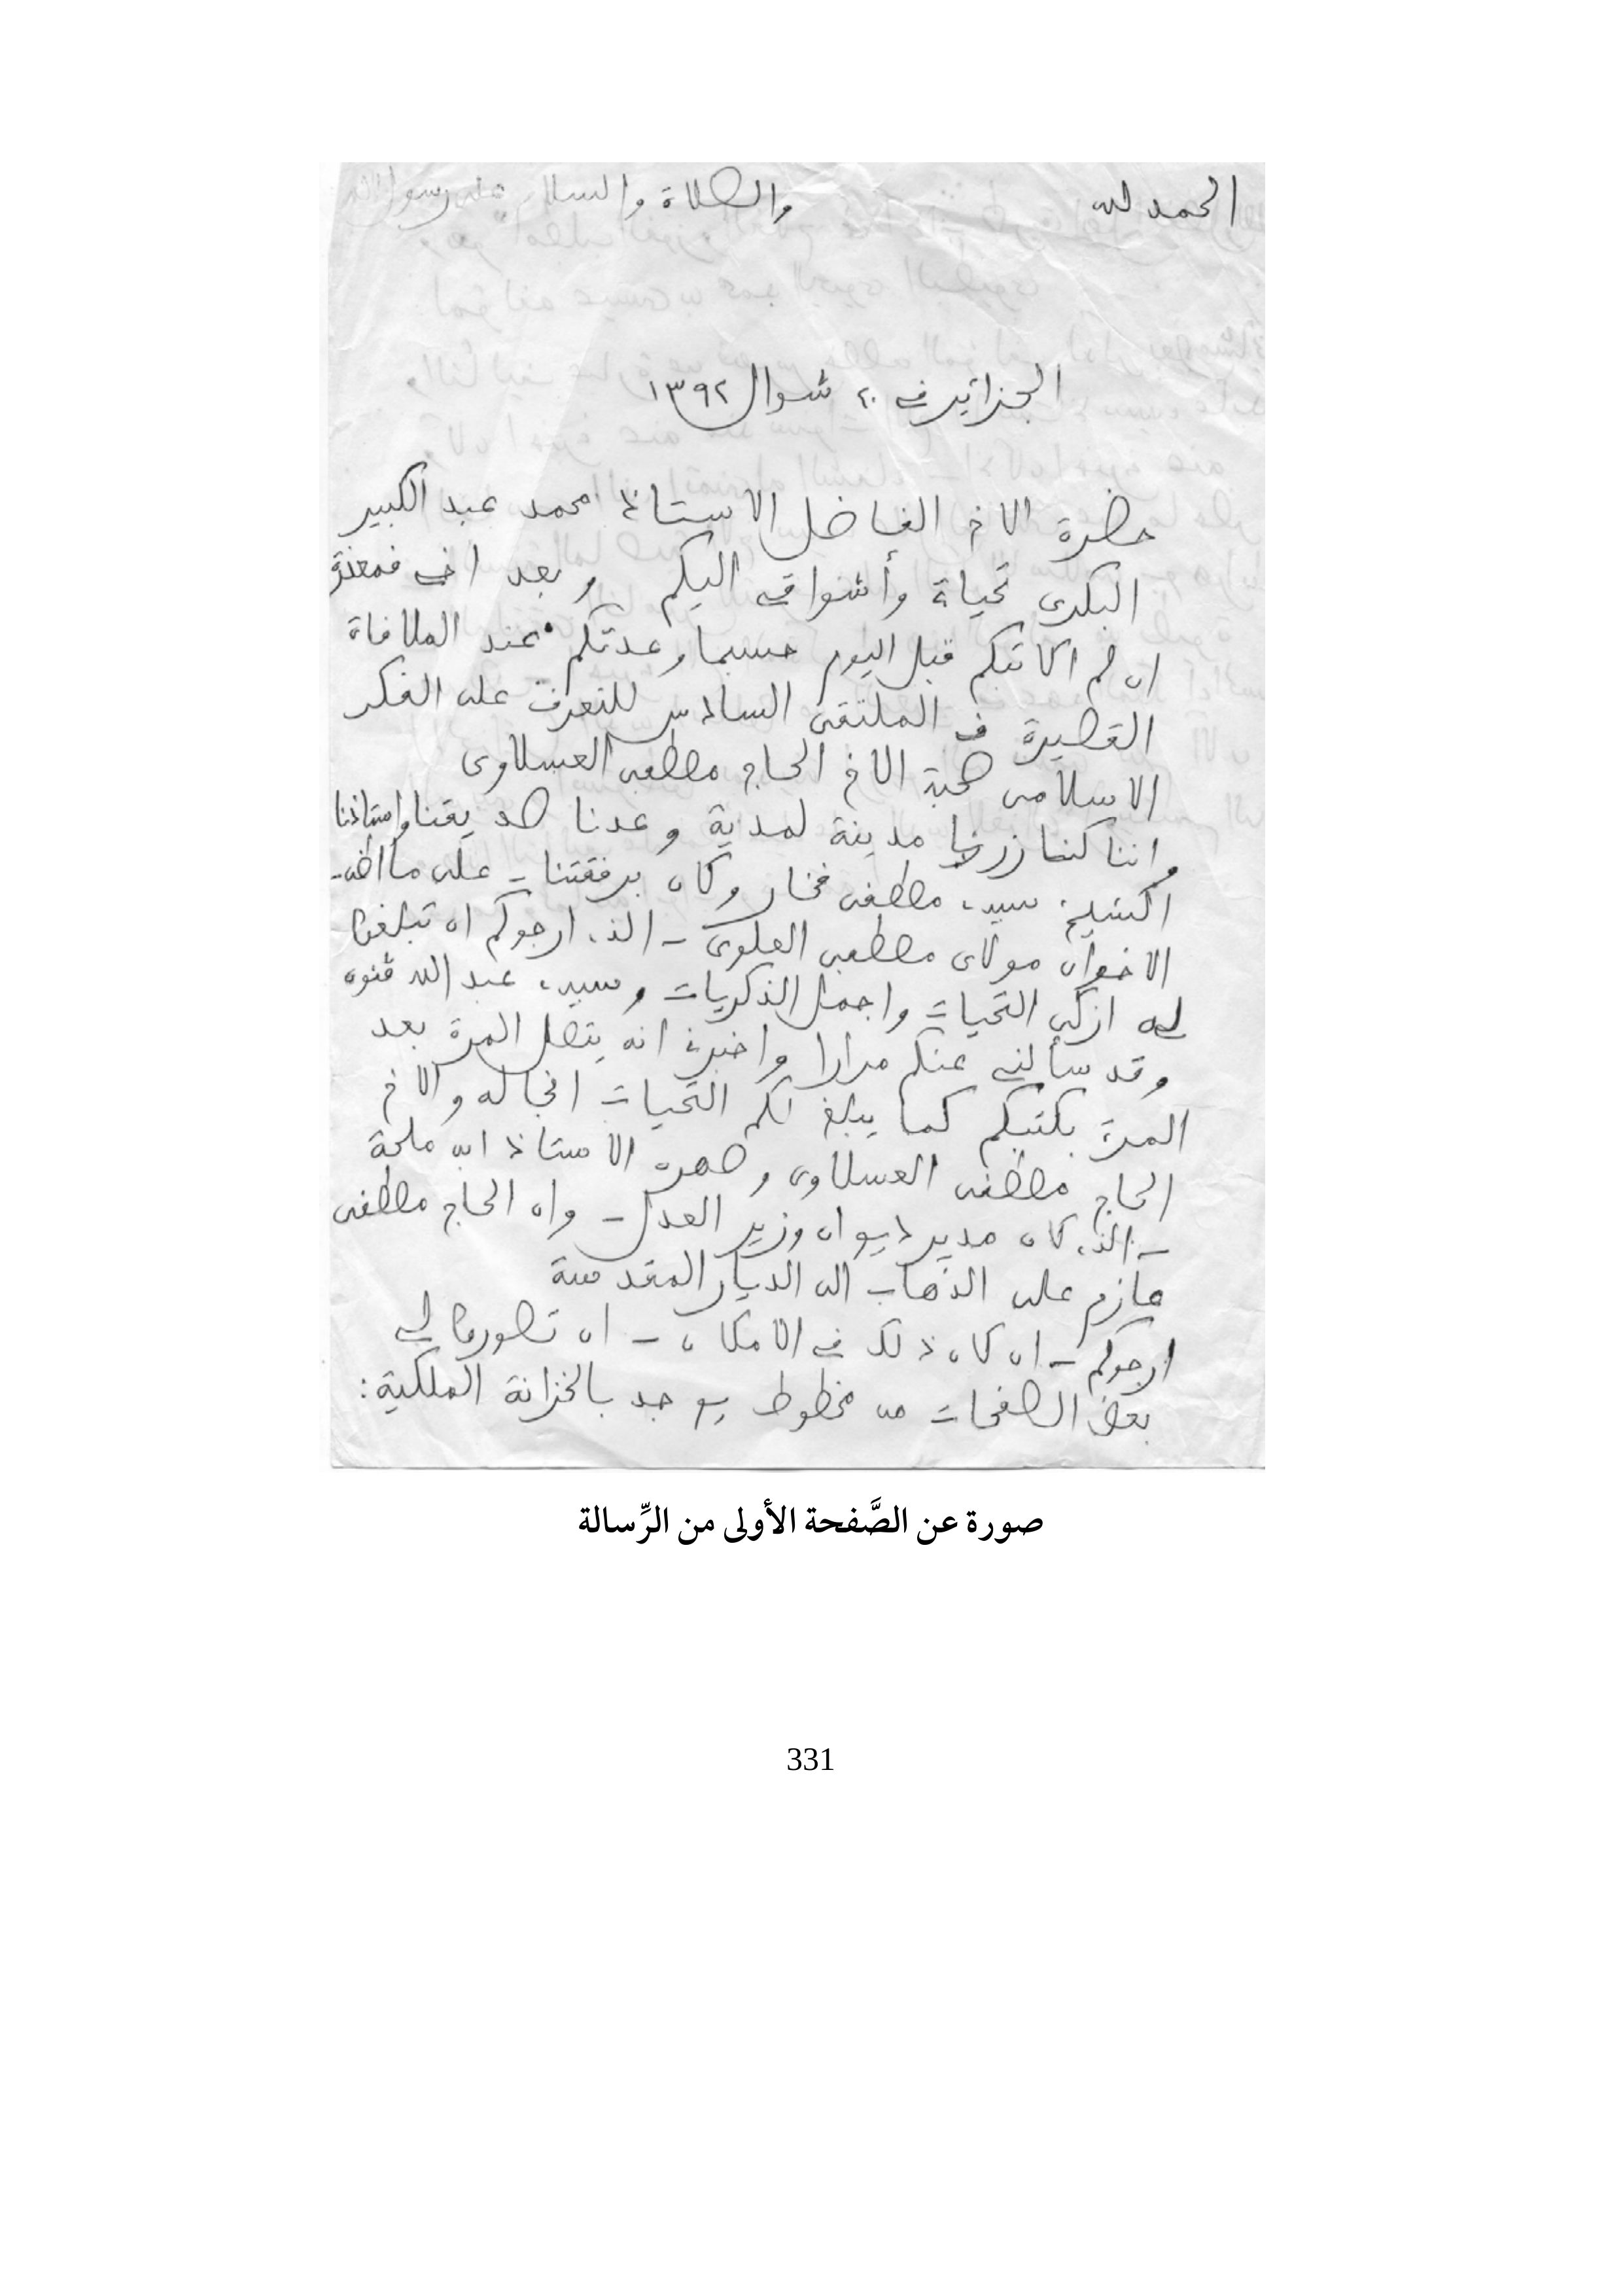 الحمد لله والصلاة والسلام على رسول الله
الجزائر في ٢٠ شوال ١٣٩٢
حضرة الاخ الفاضل الاستاذ محمد عبد الكبير
البكرى تحياة وأشواقي اليكم وبعد اخي فمعذرة
ان لم اكاتبكم قبل اليوم حسبما وعدتكم عند الملاقاة
القصيرة في الملتقى السادس للتعرف على الفكر
الاسلامى صحبة الاخ الحاج مصطفى العسلاوى
واننا كنا زرنا مدينة لمدية وعدنا صديقنا واستاذنا
الشيخ سيد مصطفى فخار وكان برفقتنا - على ما اظن -
الاخوان مولاى مصطفى العلوى - الذى ارجوكم ان تبلغوا
له ازكى التحيات واجمل الذكريات وسيدى عبد الله
وقد سألني عنكم مرارا واخبرني انه يتصل المرة بعد
المرة بكتبكم كما يبلغ لكم التحيات انجاله والاخ
الحاج مصطفى العسلاوى وصهره الاستاذ ابن ملحة
- الذى كان مدير ديوان وزير العدل - وان الحاج مصطفى
عازم على الذهاب الى الديار المقدسة
ارجوكم - ان كان ذلك في الامكان - ان تصوروا لي
بعض الصفحات من مخطوط يوجد بالخزانة الملكية:
صورة عن الصَّفحة الأولى من الرِّسالة
331